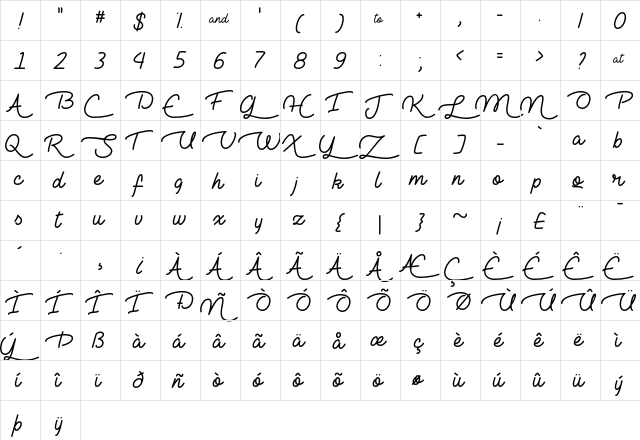 ! " # $ % and ' ( ) to + , - . / 0
1 2 3 4 5 6 7 8 9 : ; < = > ? at
A B C D E F G H I J K L M N O P
Q R S T U V W X Y Z [ ] – ` a b
c d e f g h i j k l m n o p q r
s t u v w x y z { | } ~ ¡ £ ¨ ¯
´ · ¸ ¿ À Á Â Ã Ä Å Æ Ç È É Ê Ë
Ì Í Î Ï Ð Ñ Ò Ó Ô Õ Ö Ø Ù Ú Û Ü
Ý Þ ß à á â ã ä å æ ç è é ê ë ì
í î ï ð ñ ò ó ô õ ö ø ù ú û ü ý
þ ÿ